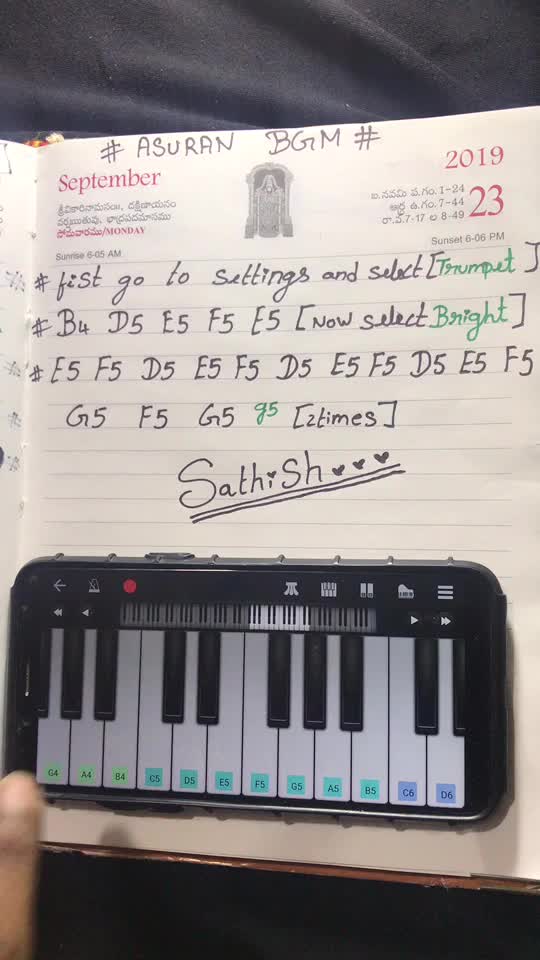 # ASURAN BGM #
September
2019
శ్రీవికారినామసం॥, దక్షిణాయనం
వర్షఋతువు, భాద్రపదమాసము
సోమవారము/MONDAY
ఐ.నవమి ప.గం. 1-24
ఆర్ద్ర ఉ.గం. 7-44
రా.వ.7-17 ల 8-49
23
Sunrise 6-05 AM
Sunset 6-06 PM
# fiSt go to settings and select [Trumpet]
# B4 D5 E5 F5 E5 [Now select Bright]
# E5 F5 D5 E5 F5 D5 E5 F5 D5 E5 F5
G5 F5 G5 g5 [2times]
SathiSh
G4 A4 B4 C5 D5 E5 F5 G5 A5 B5 C6 D6